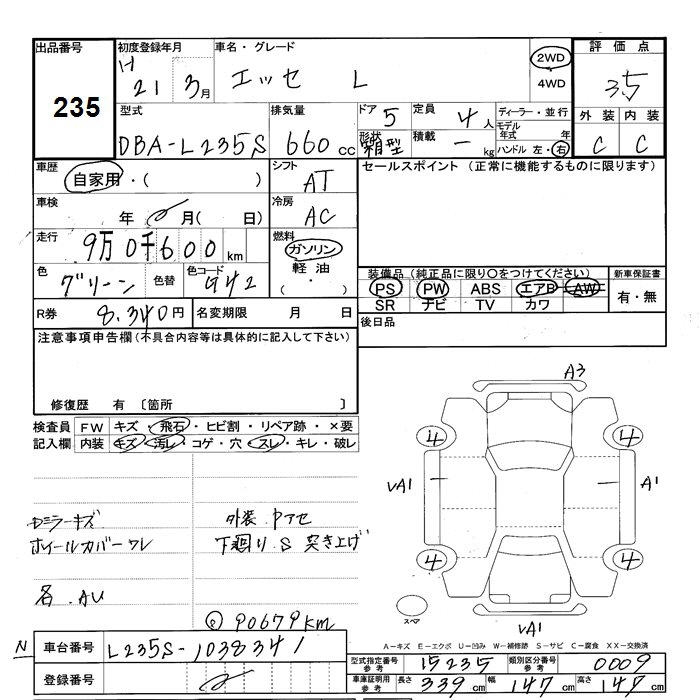 出品番号
235
初度登録年月
H 21 3月
車名・グレード
エッセ L
2WD
4WD
評価点
3.5
外装 内装
C C
型式
DBA-L235S
排気量
660 cc
ドア 5
形状 箱型
定員 4人
積載 - kg
ディーラー・並行
モデル年式 年
ハンドル 左・右
車歴
自家用・( )
シフト
AT
セールスポイント (正常に機能するものに限ります)
車検
年 月( 日)
冷房
AC
走行
9万0千600km
燃料
ガソリン
軽油
( ・ )
色
グリーン
色替
色コード
G42
装備品(純正品に限り○をつけてください)
PS PW ABS エアB AW
SR ナビ TV カワ
新車保証書
有・無
R券
8,340円
名変期限 月 日
後日品
注意事項申告欄(不具合内容等は具体的に記入して下さい)
修復歴 有 〔箇所 〕
検査員
記入欄
FW キズ・飛石・ヒビ割・リペア跡・×要
内装 キズ・汚レ・コゲ・穴・スレ・キレ・破レ
A3
4 4
VA1 A1
4 4
VA1
スペア
ミラーキズ
ホイールカバーワレ
各.AU
外装.Pアセ
下廻り.S 突き上げ
90679km
A-キズ E-エクボ U-凹み W-補修跡 S-サビ C-腐食 XX-交換済
N
車台番号
L235S-1038341
登録番号
型式指定番号 参考
15235
類別区分番号 参考
0009
車庫証明用 参考
長さ 339cm 幅 147cm 高さ 147cm